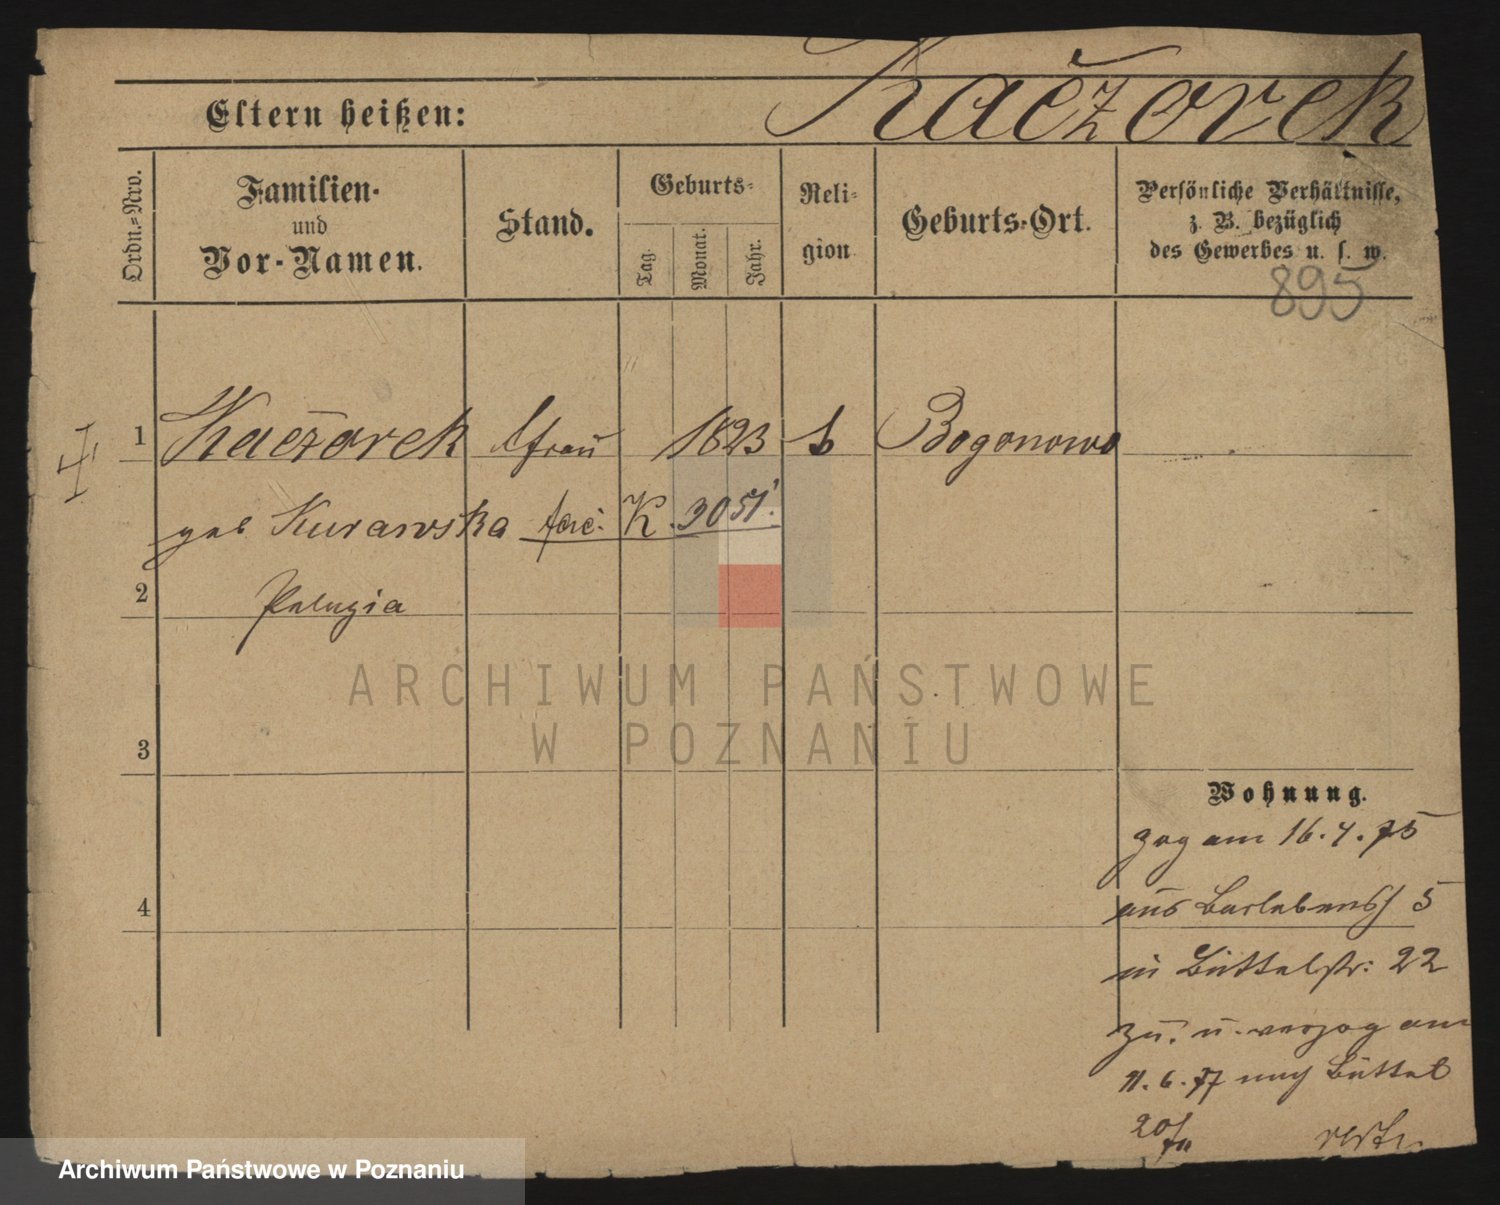 Kaczorek
Eltern heißen:
Ordn.=Nro.
Familien-
und
Vor-Namen.
Stand.
Geburts-
Tag.
Monat.
Jahr.
Reli-
gion
Geburts-Ort.
Persönliche Verhältnisse,
z. B. bezüglich
des Gewerbes u. s. w.
895
1 Kaczorek frau 1823 Bogonowo
geb Kurawska K. 3051.
2 Pelagia
3
4
ARCHIWUM PAŃSTWOWE
W POZNANIU
Wohnung.
zog am 16.4.75
aus 5
in Büttelstr: 22
zu. u. verzog am
11.6.77 nach Büttel
20/
Archiwum Państwowe w Poznaniu